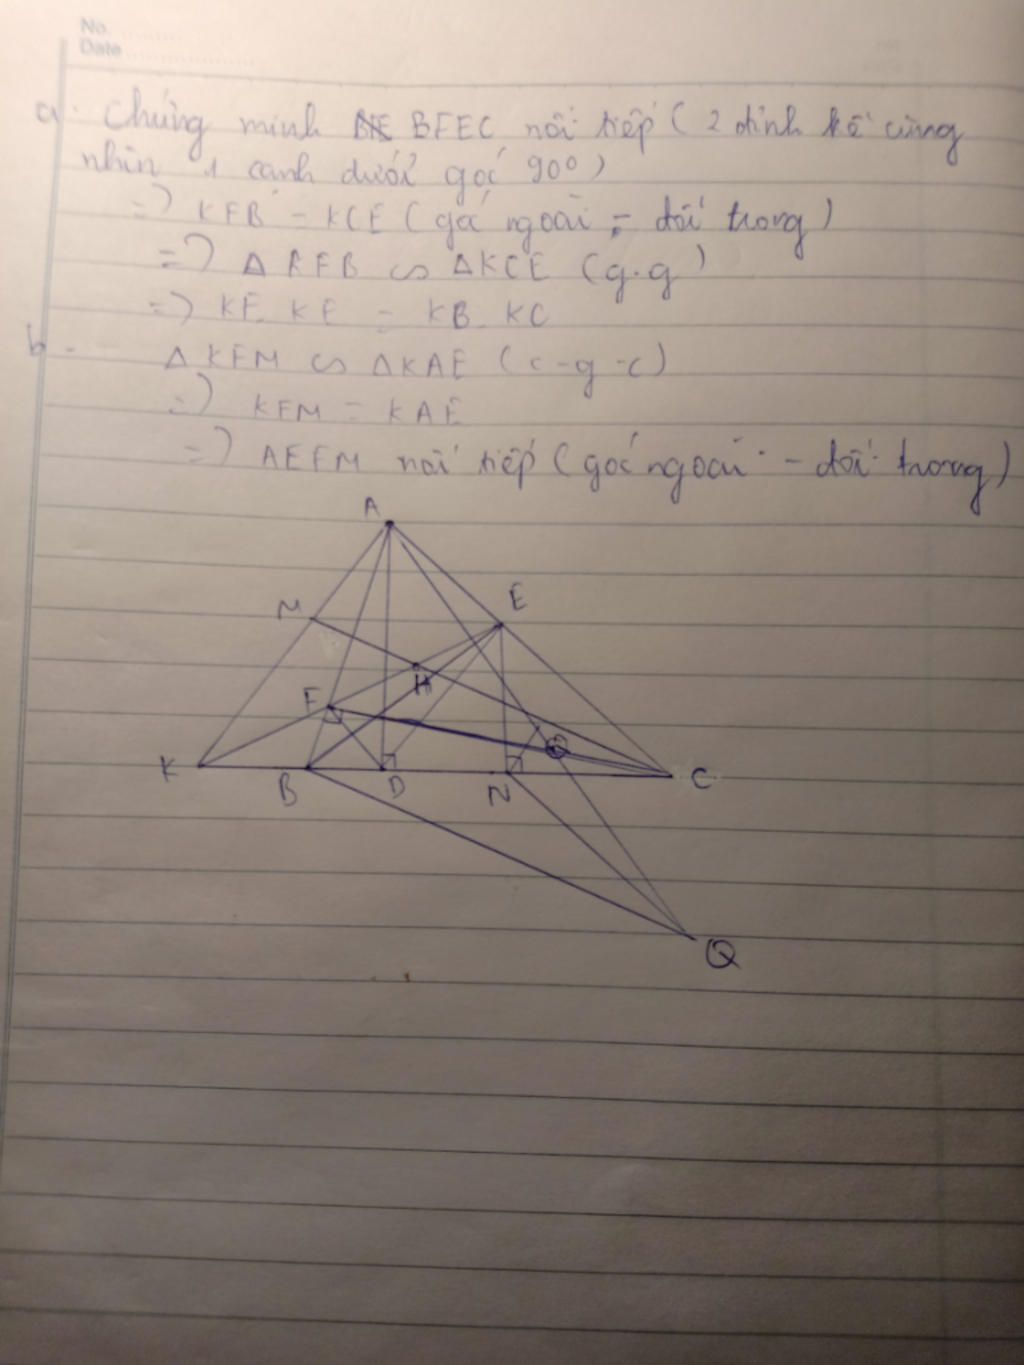 No.
Date
a. Chứng minh BFEC nội tiếp ( 2 đỉnh kề cùng
nhìn 1 cạnh dưới góc 90°)
=> KFB = KCE ( góc ngoài = đối trong )
=> Δ KFB ∽ ΔKCE (g.g)
=> KF. KE = KB. KC
b.
Δ KFM ∽ ΔKAE (c-g-c)
=> KFM = KAE
=> AEFM nội tiếp ( góc ngoài - đối trong )
A
M
E
H
F
K
B
D
N
C
Q